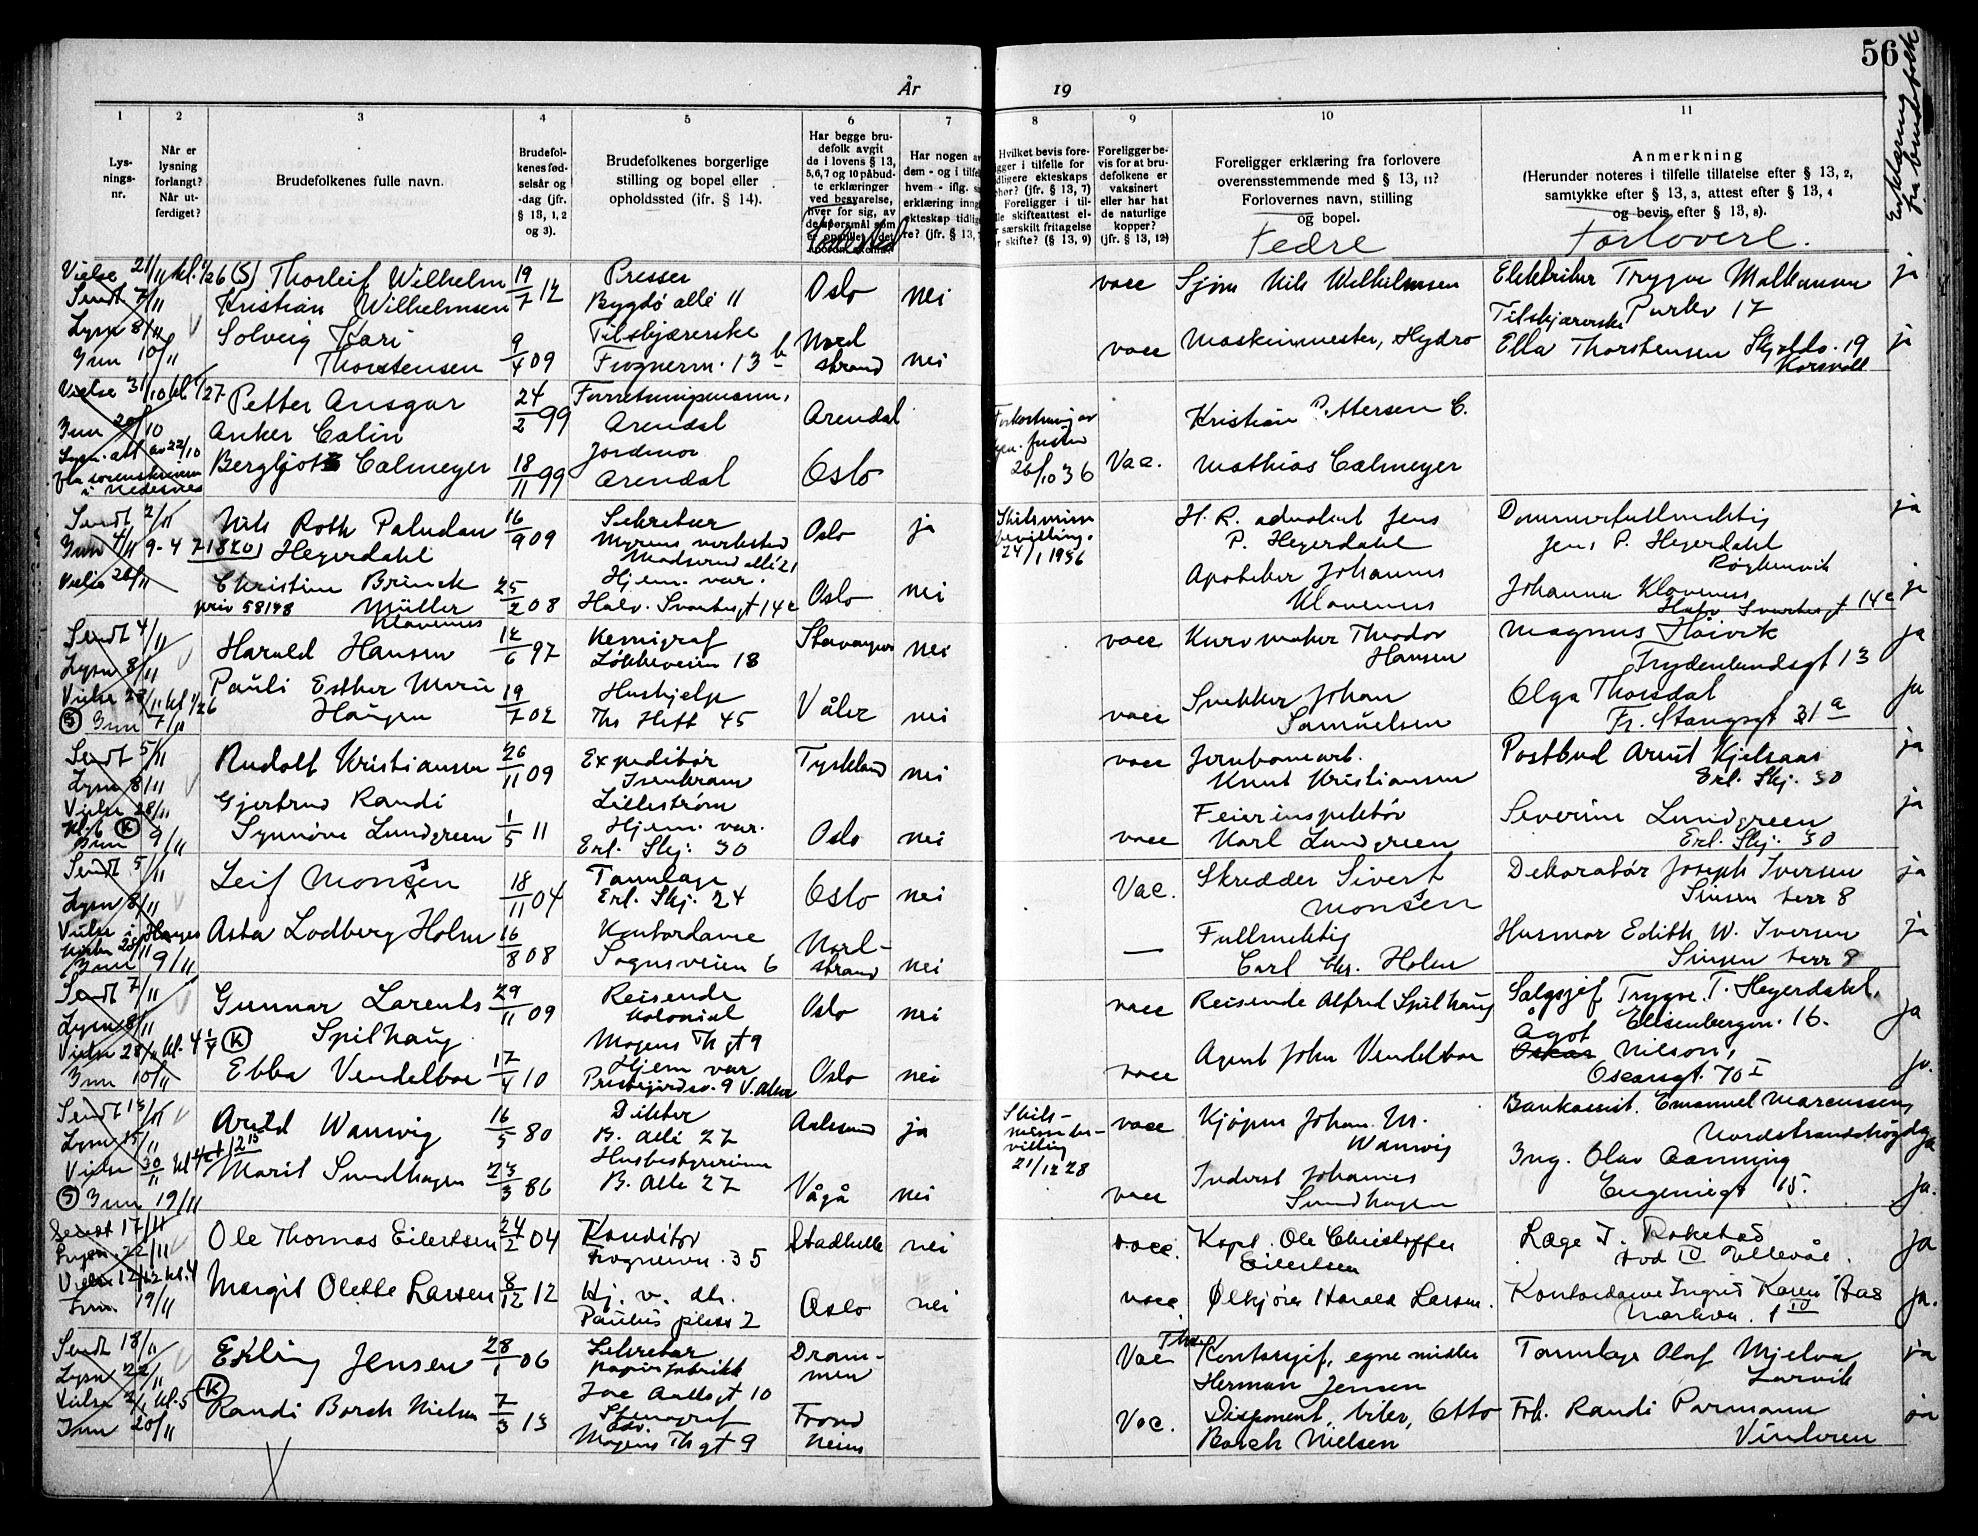 56
År
19
Erklæring fra brudefolk
1
2
3
4
5
6
7
8
9
10
11
Lys-
nings-
nr.
Når er
lysning
forlangt?
Når ut-
ferdiget?
Brudefolkenes fulle navn.
Brudefol-
kenes fød-
selsår og
-dag (jfr.
§ 13, 1, 2
og 3).
Brudefolkenes borgerlige
stilling og bopel eller
opholdssted (jfr. § 14).
Har begge bru-
defolk avgit
de i lovens § 13,
5, 6, 7 og 10 påbud-
te erklæringer
ved besvarelse,
hver for sig, av
de spørsmål som
Fødested
Har nogen av
dem - og i tilfelle
hvem - iflg. sin
erklæring inngått
ekteskap tidlige-
re? (jfr. § 13,
Hvilket bevis fore-
ligger i tilfelle for
tidligere ekteskaps
ophør? (jfr. § 13, 7)
Foreligger i til-
felle skifteattest el-
ler særskilt fritagelse
for skifte? (§ 13, 9)
Foreligger be-
vis for at bru-
defolkene er
vaksinert
eller har hat
de naturlige
kopper?
(jfr. § 13, 12)
Foreligger erklæring fra forlovere
overensstemmende med § 13, 11?
Forlovernes navn, stilling
og bopel.
Fedre
Anmerkning
(Herunder noteres i tilfelle tillatelse efter § 13, 2,
samtykke efter § 13, 3, attest efter § 13, 4
og bevis efter § 13, 8).
Forlovere.
Vielse 21/11 kl. 1/26 (S) Thorleif Wilhelm 19/7 12 Presser Oslo nei vacc Sjøm Nils Wilhelmsen Elektriker Trygve Mathausen ja
Sendt 7/11 Kristian Wilhelmsen Bygdø allé 11
Lysn 8/11 Solveig Kari Tilskjærerske Nord Tilskjærerske
Inn 10/11 Thorstensen 9/4 09 Frognerv. 13 b strand nei vacc Maskinmester, Hydro Ella Thorstensen 19 ja
Korsvoll
Vielse 31/10 kl 1/27 Petter Ansgar 24/2 99 Forretningsmann, Arendal Kristian Pettersen C.
Inn 20/10 Anker Calin Arendal
Lysn. att av 22/10 Bergljot Calmeyer 18/11 99 Jordmor Oslo 26/10 36 Vac. Mathias Calmeyer
fra sorenskriveren Arendal
i Nedenes
Sendt 2/11 Nils Roth Paludan 16/9 09 Sekretær Oslo ja Skilsmisse H. R. advokat Jens Dommerfullmektig ja
Inn 4/11 9-4 71840 Heyerdahl Myrens verksted bevilling. P. Heyerdahl Jens P. Heyerdahl
Madserud allé 21 24/1 1936 Røykenvik
Vielse 28/11 Christine Brinck 25/2 08 Hjem. var. Oslo nei Apoteker Johannes Johanne Klavenes ja
priv 58148 Müller Halv. Svartesgt 14 c Klavenes Halv Svartesgt 14 c
Klavenes
Sendt 4/11 Harald Hansen 12/6 97 Kemigraf Stavanger nei vacc Kurvmaker Theodor Magnus Høivik ja
Lysn 8/11 Løkkeveien 18 Hansen Frydenlundsgt 13
Vielse 28/11 kl 1/26 Pauli Esther Marie 19/7 02 Hushjelp Våler nei vacc Snekker Johan Olga Thorsdal ja
(S) Inn 7/11 Haugen Ths Heft 45 Samuelsen Fr. Stangsgt 31 a
Sendt 5/11 Rudolf Kristiansen 26/11 09 Expeditør Tyskland nei vacc Jernbanearb. Postbud Arnt Kjelsaas ja
Lysn 8/11 Isenkram Knut Kristiansen Erl. Skj. 30
Vielse 28/11 Gjertrud Randi Lillestrøm Feierinspektør Severine Lundgreen ja
Kl. 6 (K) Synnøve Lundgreen 1/5 11 Hjem. var. Oslo nei vacc Karl Lundgreen Erl. Skj. 30
Inn 9/11 Erl. Skj. 30
Sendt 5/11 Leif Monssen 18/11 04 Tannlæge Oslo nei Vac. Skredder Sivert Dekoratør Joseph Iversen ja
Lysn 8/11 Erl. Skj. 24 Monssen Sinsen terr 8
Vielse i Hauges Asta Lodberg Holm 16/8 08 Kontordame Nord- nei — Fullmektig Husmor Edith W. Iversen ja
28/11 Sognsveien 6 strand Carl Chr. Holm Sinsen terr 8
Inn 9/11
Sendt 7/11 Gunnar Larents 29/11 09 Reisende Oslo nei vacc Reisende Alfred Spilhaug Salgsjef Trygve T. Heyerdahl, ja
Lysn 8/11 Spilhaug Kolonial Elisenbergvn. 16.
Vielse 28/11 kl. 4 1/4 (K) Mogens Th gt 9 Ågot
Inn 10/11 Ebba Vendelboe 17/4 10 Hjem var Oslo nei vacc Agent John Vendelboe Oskar Nilson, ja.
Prestegårdsv. 9 V. Aker Oscarsgt. 70 I
Sendt 13/11 Arvid Wamvig 16/5 80 Direktør Aalesund ja Skils- vacc Kjøpm Johan M. Bankassist. Emanuel Marcussen
Lysn 15/11 B. Allé 27 misse be- Wamvig Nordstrandshøgda ja
Vielse 30/11 kl 12 15 Marit Sundhagen 23/3 86 Husbestyrerinne Vågå nei villing vacc Inderst Johannes Ing. Olav Aanning
(S) Inn 19/11 B. Alle 27 21/12 28 Sundhagen Eugeniegt 15. ja.
Sendt 17/11 Ole Thomas Eilertsen 24/2 04 Konditor Stadhelle nei vacc. Kapt. Ole Christoffer Læge T. Rokstad ja
Lysn. 22/11 Frognervn. 35 Eilertsen Ullevål.
Vielse 12/12 kl. 4 Margit Olette Larsen 8/12 12 Hj. v. dtr. Oslo nei vacc. Ølkjører Harald Larsen. Kontordame Ingrid Karen Aas ja.
Inn. 19/11 Paulus plass 2 Markvn. 1 IV
Sendt 18/11 Erling Jensen 28/1 06 Sekretær Dram- Vac Kontorsjef, egne midler Tannlæge Olaf Mjelva ja
Lysn 22/11 papirfabrikk men Herman Jensen Larvik
Vielse 2/1 kl. 5 (K) Jac Aallsgt 10
Inn 20/11 Randi Borch Nielsen 7/3 13 Stenograf Trond Vac. Disponent, Otto Frk. Randi Parmann ja
Mogens Th gt 9 heim Borch Nielsen Vinderen